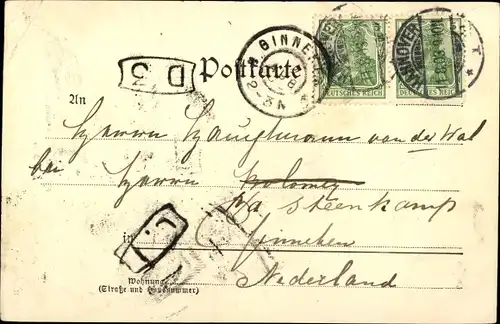 GINNEKEN
HANNOVER
DEUTSCHES REICH
DEUTSCHES REICH
D 3
Postkarte
An
Herrn Hauptmann van der Wal
bei Herrn
Steenkamp
in Ginneken
Nederland
Wohnung
(Straße und Hausnummer)